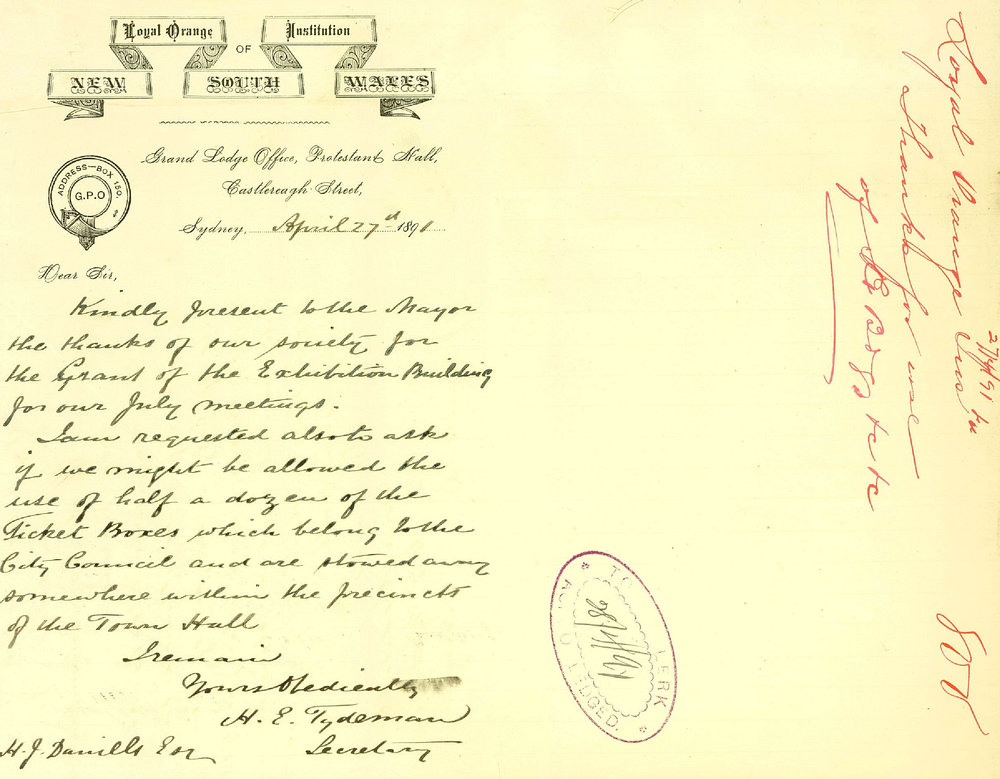 Loyal Orange Institution
OF
NEW SOUTH WALES
Grand Lodge Office, Protestant Hall,
Castlereagh Street,
ADDRESS-BOX 150.
G.P.O
Sydney, April 27th 1891
Dear Sir,
Kindly present to the Mayor
the thanks of our society for
the Grant of the Exhibition Building
for our July meetings.
I am requested also to ask
if we might be allowed the
use of half a dozen of the
Ticket Boxes which belong to the
City Council and are stowed away
somewhere within the precincts
of the Town Hall
I remain
Yours Obediently
H. E. Tydeman
Secretary
H. J. Daniells Esq
Loyal Orange Ins
Thanks for use
of Ex Bdg &c &c
TOWN CLERK
ACKNOWLEDGED.